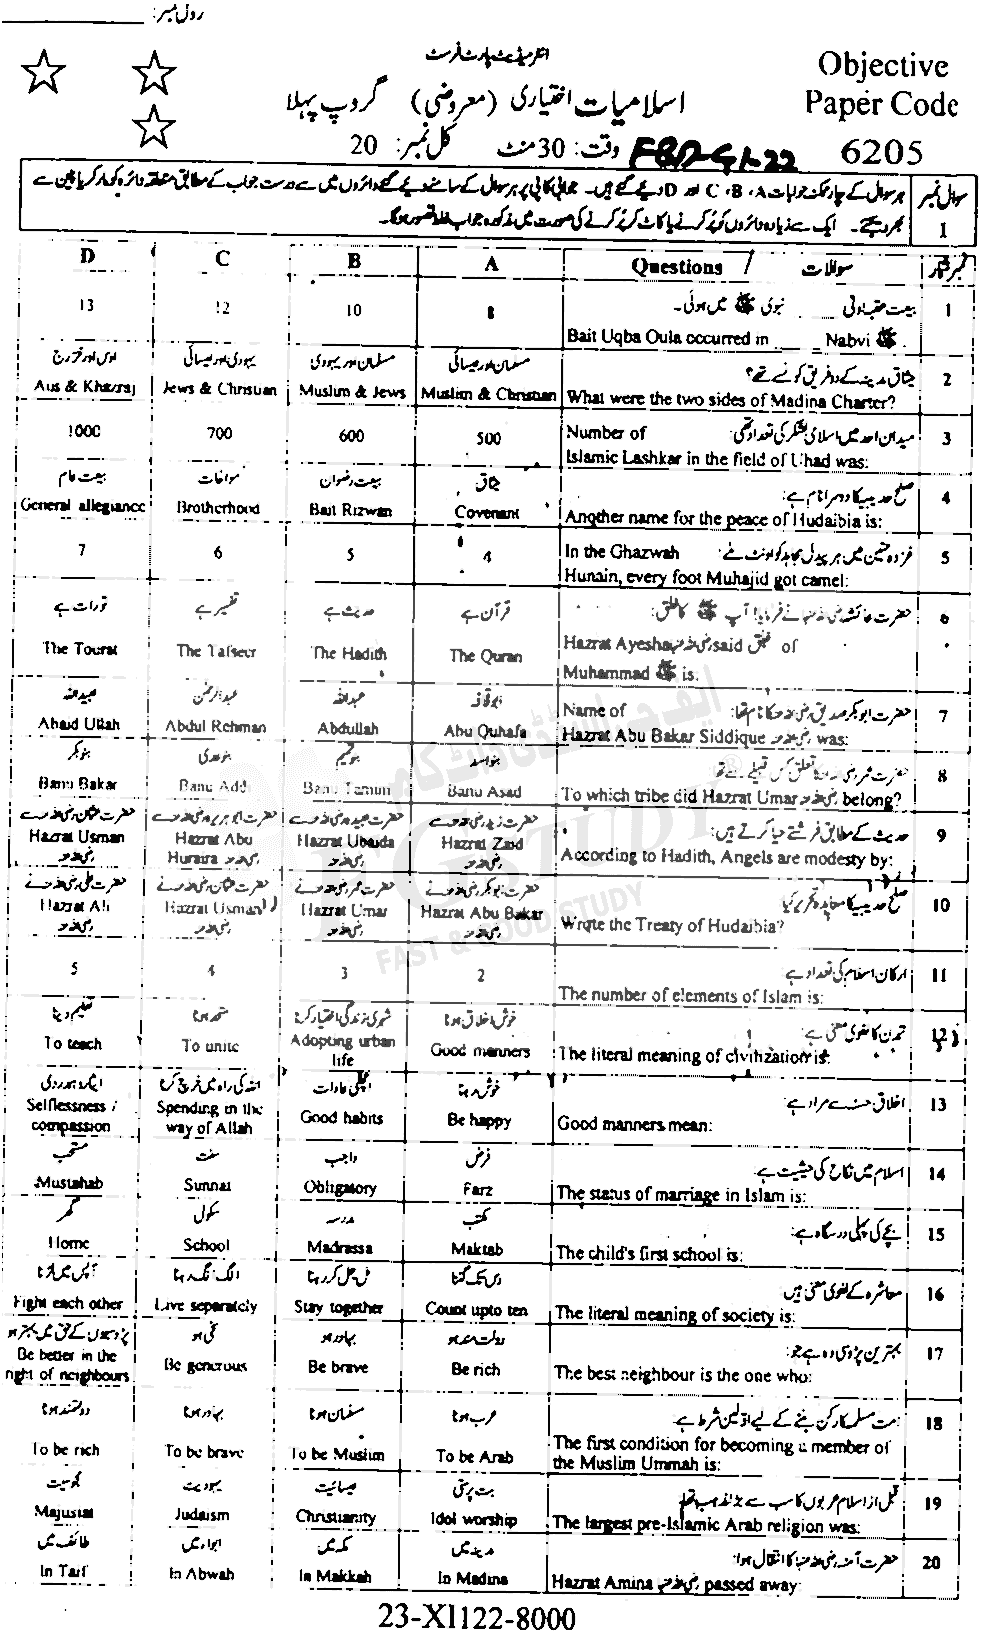 رول نمبر:
انٹرمیڈیٹ پارٹ فرسٹ
Objective
Paper Code
6205
اسلامیات اختیاری (معروضی) گروپ پہلا
وقت: 30 منٹ کل نمبر: 20
FBD-G1-22
سوال نمبر 1
ہر سوال کے چار ممکنہ جوابات A، B، C اور D دیئے گئے ہیں۔ جوابی کاپی پر ہر سوال کے سامنے دیئے گئے دائروں میں سے درست جواب کے مطابق متعلقہ دائرہ کو مارکر یا پین سے
بھر دیجئے۔ ایک سے زیادہ دائروں کو پُر کرنے یا کاٹ کر پُر کرنے کی صورت میں مذکورہ جواب غلط تصور ہوگا۔
D C B A Questions / سوالات نمبر شمار
1 بیعت عقبہ اولیٰ ____ نبوی ﷺ میں ہوئی۔
Bait Uqba Oula occurred in ____ Nabvi ﷺ.
13 12 10 8
2 میثاق مدینہ کے دو فریق کونسے تھے؟
What were the two sides of Madina Charter?
اوس اور خزرج یہودی اور عیسائی مسلمان اور یہودی مسلمان اور عیسائی
Aus & Khazraj Jews & Christian Muslim & Jews Muslim & Christian
3 میدان احد میں اسلامی لشکر کی تعداد تھی:
Number of Islamic Lashkar in the field of Uhad was:
1000 700 600 500
4 صلح حدیبیہ کا دوسرا نام ہے:
Another name for the peace of Hudaibia is:
بیعت عام مواخات بیعت رضوان میثاق
General allegiance Brotherhood Bait Rizwan Covenant
5 غزوہ حنین میں ہر پیدل مجاہد کو اونٹ ملے:
In the Ghazwah Hunain, every foot Muhajid got camel:
7 6 5 4
6 حضرت عائشہ رضی اللہ عنہا نے فرمایا! آپ ﷺ کا خلق:
Hazrat Ayesha رضی اللہ عنہا said خلق of
Muhammad ﷺ is:
تورات ہے تفسیر ہے حدیث ہے قرآن ہے
The Tourat The Tafseer The Hadith The Quran
7 حضرت ابوبکر صدیق رضی اللہ عنہ کا نام تھا:
Name of Hazrat Abu Bakar Siddique رضی اللہ عنہ was:
عبیداللہ عبدالرحمٰن عبداللہ ابوقحافہ
Abaid Ullah Abdul Rehman Abdullah Abu Quhafa
8 حضرت عمر رضی اللہ عنہ کا تعلق کس قبیلے سے تھا؟
To which tribe did Hazrat Umar رضی اللہ عنہ belong?
بنوبکر بنوعدی بنوتمیم بنواسد
Banu Bakar Banu Addi Banu Tamim Banu Asad
9 حدیث کے مطابق فرشتے حیا کرتے ہیں:
According to Hadith, Angels are modesty by:
حضرت عثمان رضی اللہ عنہ سے حضرت ابوہریرہ رضی اللہ عنہ سے حضرت عبیدہ رضی اللہ عنہ سے حضرت زید رضی اللہ عنہ سے
Hazrat Usman رضی اللہ عنہ Hazrat Abu Huraira رضی اللہ عنہ Hazrat Ubaida رضی اللہ عنہ Hazrat Zaid رضی اللہ عنہ
10 صلح حدیبیہ کا معاہدہ تحریر کیا
Wrote the Treaty of Hudaibia?
حضرت علی رضی اللہ عنہ نے حضرت عثمان رضی اللہ عنہ نے حضرت عمر رضی اللہ عنہ نے حضرت ابوبکر رضی اللہ عنہ نے
Hazrat Ali رضی اللہ عنہ Hazrat Usman رضی اللہ عنہ Hazrat Umar رضی اللہ عنہ Hazrat Abu Bakar رضی اللہ عنہ
11 ارکان اسلام کی تعداد ہے
The number of elements of Islam is:
5 4 3 2
12 تمدن کا لغوی معنی ہے:
The literal meaning of civilization is:
تعلیم دینا متحد ہونا شہری زندگی اختیار کرنا خوش اخلاق ہونا
To teach To unite Adopting urban life Good manners
13 اخلاق حسنہ سے مراد ہے:
Good manners mean:
ایثار و ہمدردی اللہ کی راہ میں خرچ کرنا اچھی عادات خوش رہنا
Selflessness / compassion Spending in the way of Allah Good habits Be happy
14 اسلام میں نکاح کی حیثیت ہے:
The status of marriage in Islam is:
مستحب سنت واجب فرض
Mustahab Sunnat Obligatory Farz
15 بچے کی پہلی درسگاہ ہے:
The child's first school is:
گھر سکول مدرسہ مکتب
Home School Madrassa Maktab
16 معاشرہ کے لغوی معنی ہیں:
The literal meaning of society is:
آپس میں لڑنا الگ الگ رہنا مل جل کر رہنا دس تک گننا
Fight each other Live separately Stay together Count upto ten
17 بہترین پڑوسی وہ ہے جو:
The best neighbour is the one who:
پڑوسیوں کے حق میں بہتر ہو سخی ہو بہادر ہو دولت مند ہو
Be better in the right of neighbours Be generous Be brave Be rich
18 امت مسلمہ کا رکن بننے کے لیے اولین شرط ہے:
The first condition for becoming a member of
the Muslim Ummah is:
دولتمند ہونا بہادر ہونا مسلمان ہونا عرب ہونا
To be rich To be brave To be Muslim To be Arab
19 قبل از اسلام عربوں کا سب سے بڑا مذہب تھا
The largest pre-Islamic Arab religion was:
مجوسیت یہودیت عیسائیت بت پرستی
Majusiat Judaism Christianity Idol worship
20 حضرت آمنہ رضی اللہ عنہا کا انتقال ہوا:
Hazrat Amina رضی اللہ عنہا passed away:
طائف میں ابواء میں مکہ میں مدینہ میں
In Taif In Abwah In Makkah In Madina
23-XI122-8000
FAST & GOOD STUDY